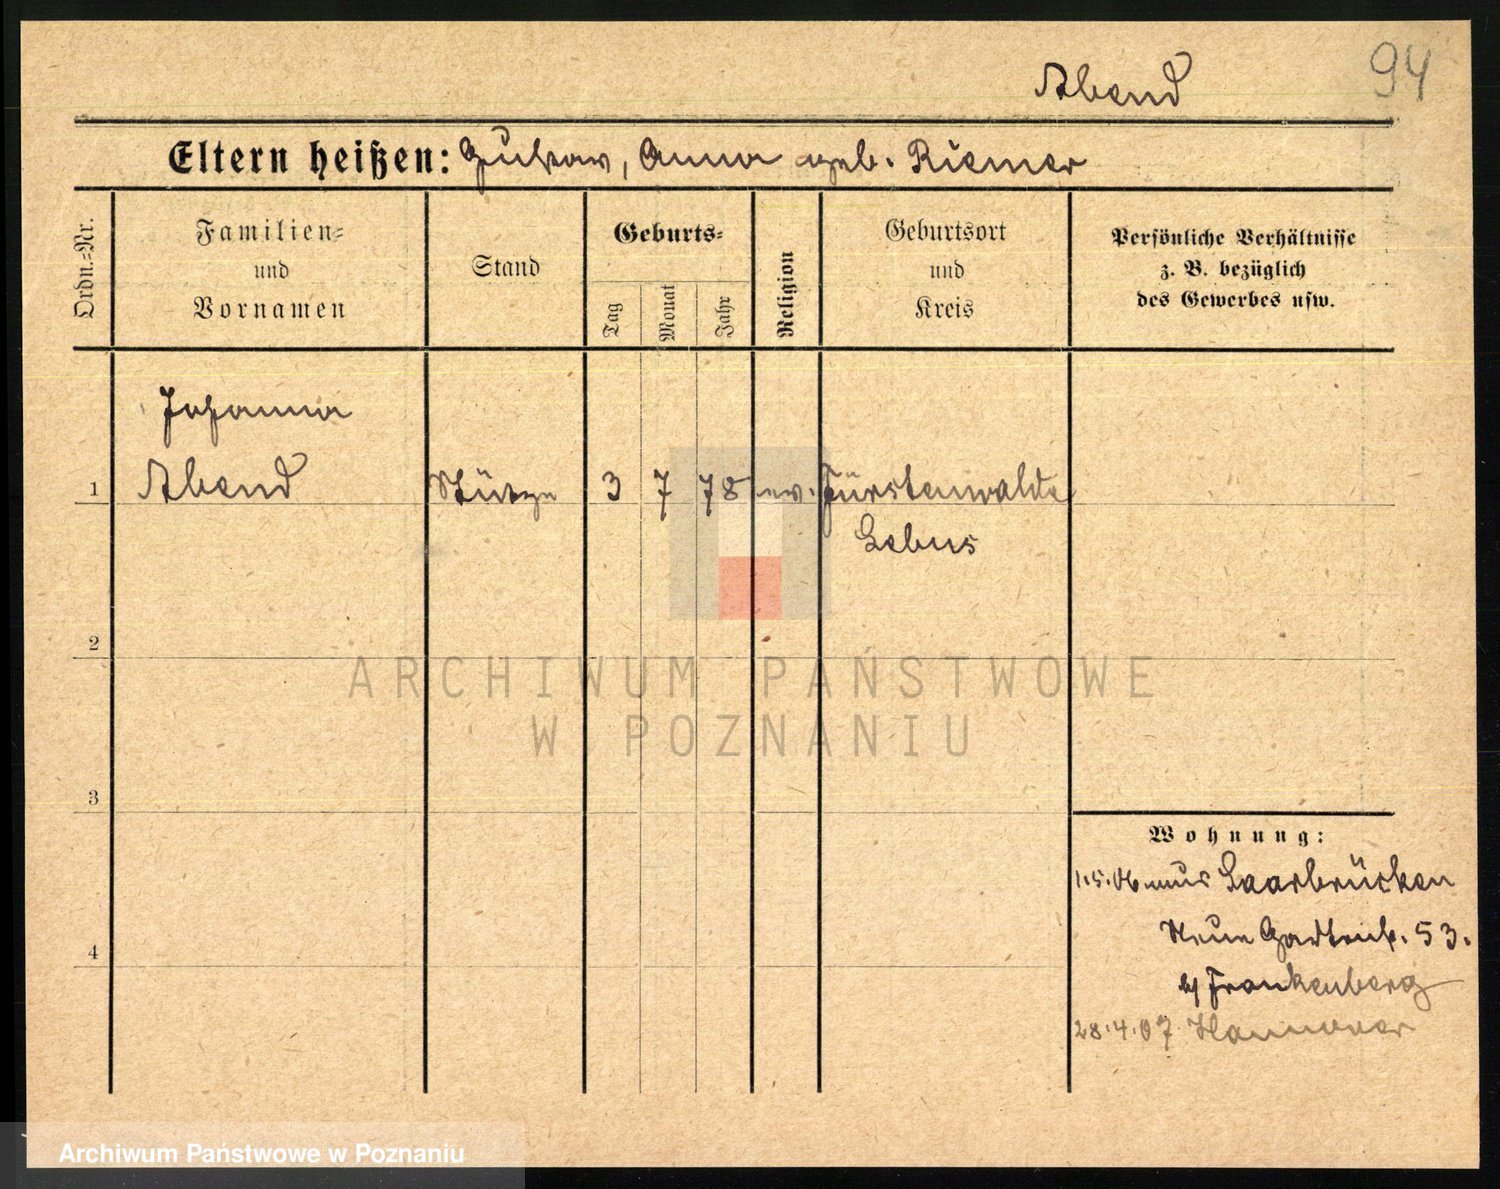 94
Abend
Eltern heißen: Gustav, Anna geb. Riemer
Ordn.-Nr.
Familien-
und
Vornamen
Stand
Geburts-
Tag
Monat
Jahr
Religion
Geburtsort
und
Kreis
Persönliche Verhältnisse
z. B. bezüglich
des Gewerbes usw.
Johanna
1 Abend Stütze 3 7 78 ev. Fürstenwalde
Lebus
2
3
4
Wohnung:
1.5.06 aus Saarbrücken
Neue 53.
b/ Frankenberg
28.4.07 Hannover
ARCHIWUM PAŃSTWOWE
W POZNANIU
Archiwum Państwowe w Poznaniu